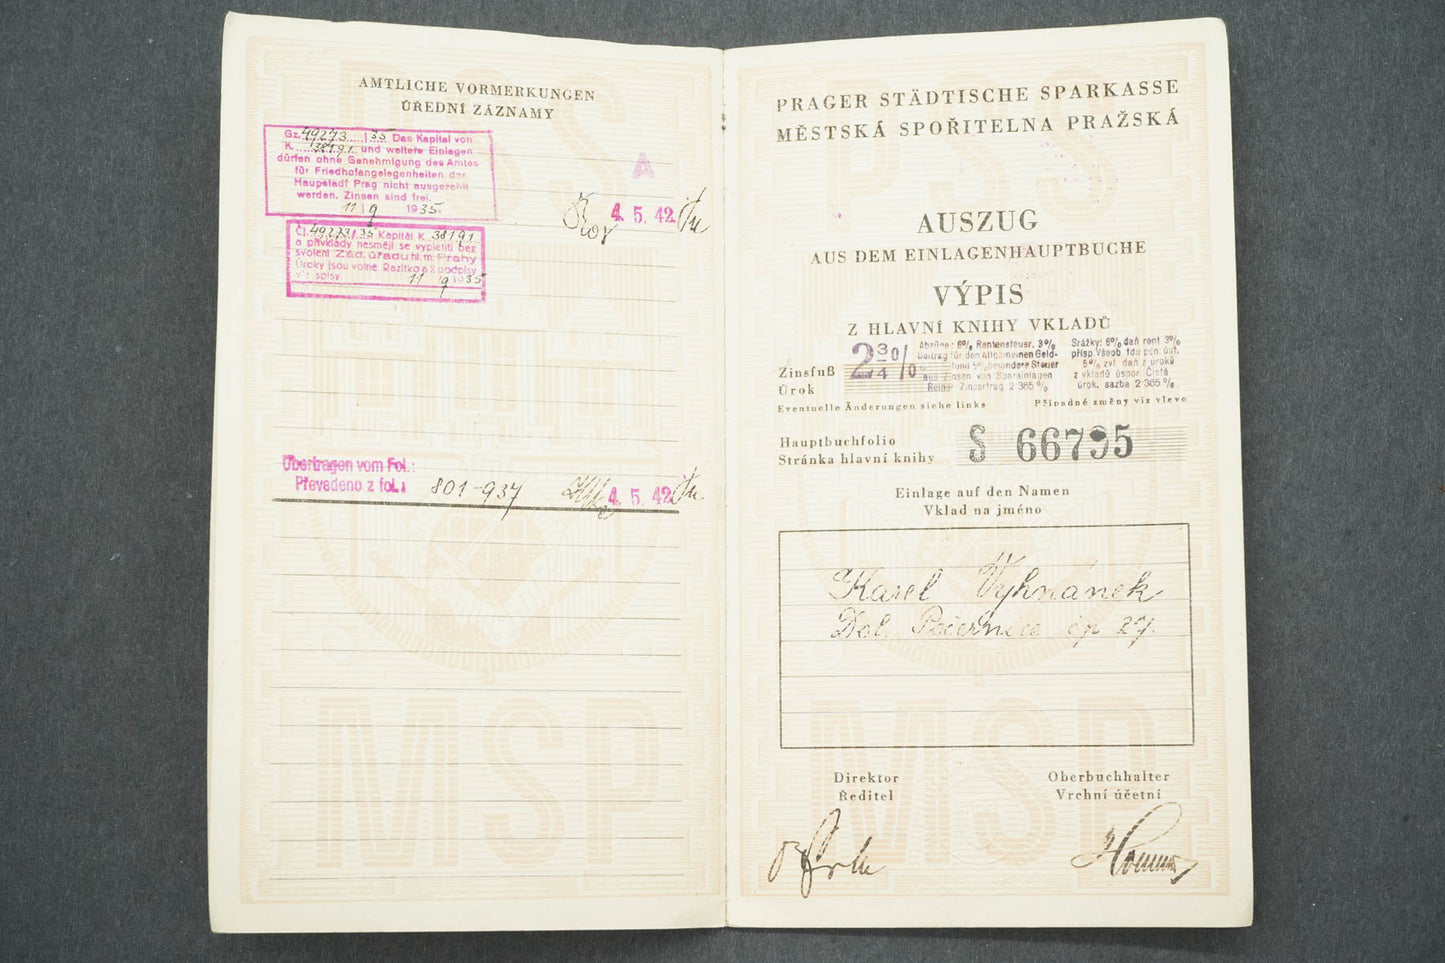 AMTLICHE VORMERKUNGEN
ÚŘEDNÍ ZÁZNAMY
Gz. 49273 / 35 Das Kapital von
K. 38191 und weitere Einlagen
dürfen ohne Genehmigung des Amtes
für Friedhofangelegenheiten der
Haupstadt Prag nicht ausgezahlt
werden. Zinsen sind frei.
11/9 1935.
Čj. 49273/35 Kapitál K 38191
a přívklady nesmějí se vypletiti bez
svolení Zád. úřadu hl. m. Prahy
Úroky jsou volné Razítko a 2 podpisy
11 9 1935
A
4. 5. 42
Übertragen vom Fol.:
Převedeno z fol.: 801-937
4. 5. 42
PRAGER STÄDTISCHE SPARKASSE
MĚSTSKÁ SPOŘITELNA PRAŽSKÁ
AUSZUG
AUS DEM EINLAGENHAUPTBUCHE
VÝPIS
Z HLAVNÍ KNIHY VKLADŮ
Zinsfuß
Úrok
2 3/4 %
Abzüge: 6% Rentensteuer, 3%
Beitrag für den Allgemeinen Geld-
fond 5% besondere Steuer
aus Zinsen von Spareinlagen
Reiner Zinsertrag 2·365 %
Srážky: 6% daň rent 3%
přísp. Všeob fdu pen. úst.
5% zvl daň z úroků
z vkladů úspor. Čistá
úrok. sazba 2·365 %
Eventuelle Änderungen siehe links
Případné změny viz vlevo
Hauptbuchfolio
Stránka hlavní knihy
S 66795
Einlage auf den Namen
Vklad na jméno
Karel Vyhnánek
Dol. Počernice čp 27.
Direktor
Ředitel
Oberbuchhalter
Vrchní účetní
MSP
MSP